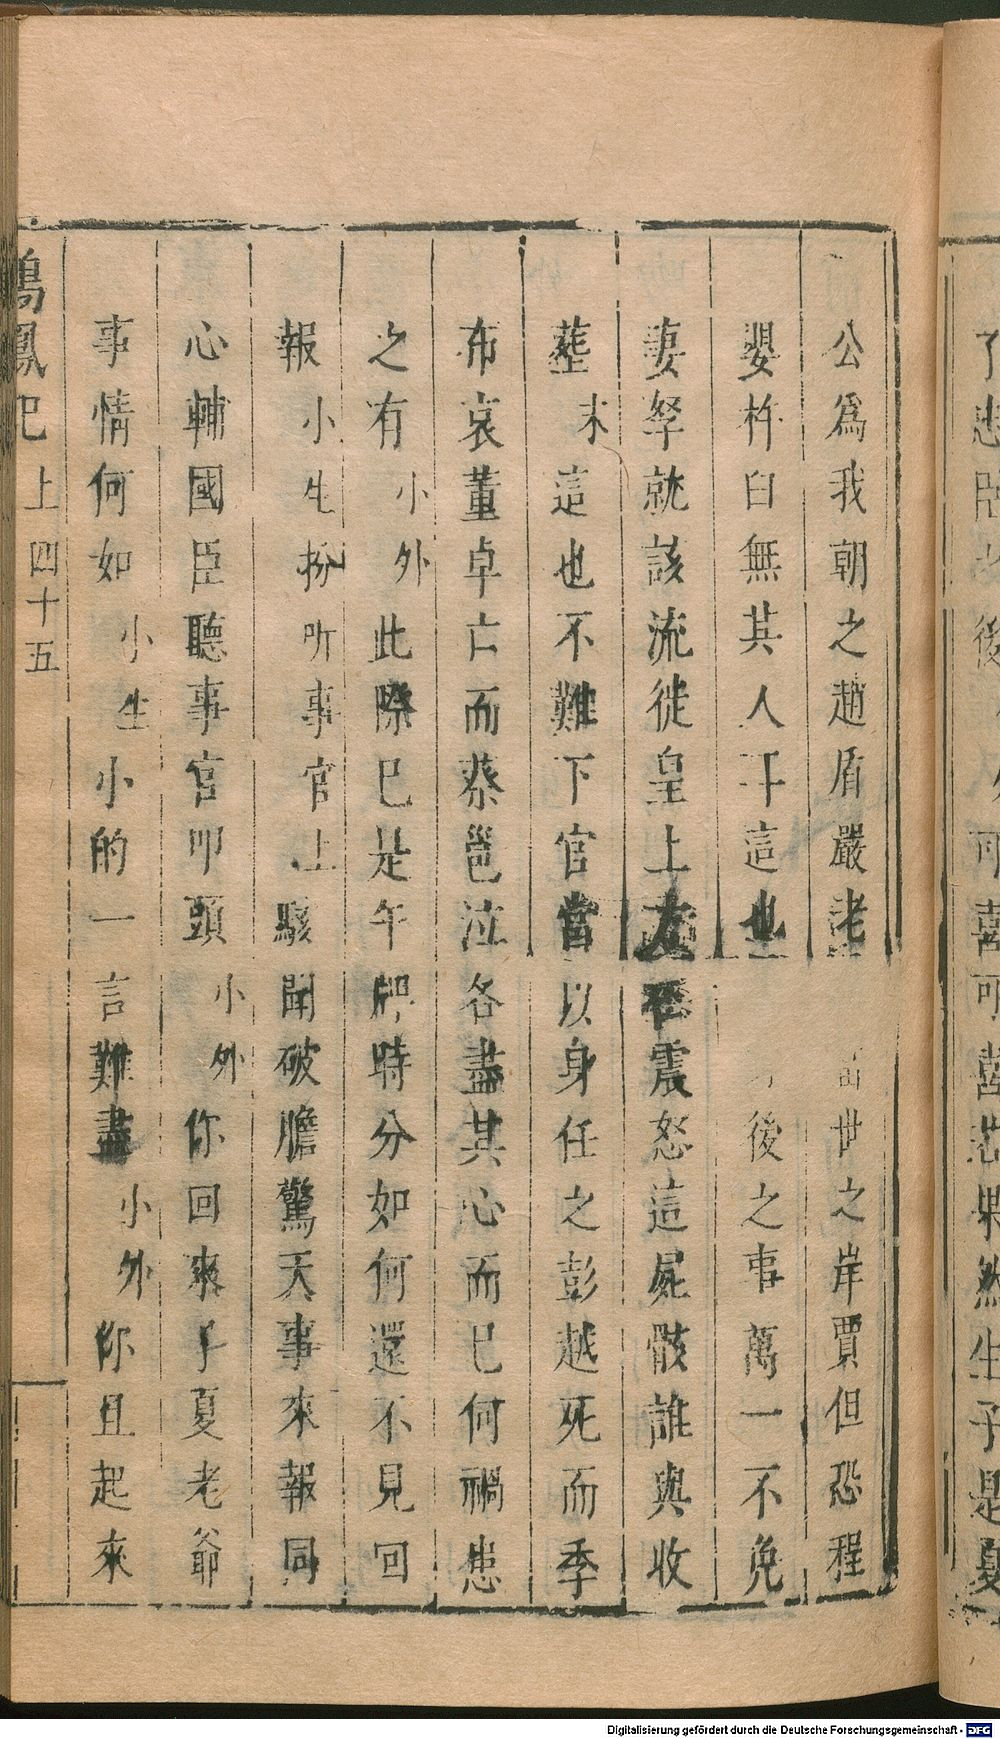 公爲我朝之趙盾嚴老世之岸賈但恐程
嬰杵臼無其人耳這也後之事萬一不免
妻孥就該流徙皇上震怒這屍骸誰與收
葬末這也不難下官當以身任之彭越死而季
布哀董卓亡而蔡邕泣各盡其心而已何禍患
之有小外此際已是午牌時分如何還不見回
報小生扮听事官上駭聞破膽驚天事來報同
心輔國臣聽事官叩頭小外你回來了夏老爺
事情何如小生小的一言難盡小外你且起來
鳴鳳記上四十五
後
可喜可
果然生子是夏
Digitalisierung gefördert durch die Deutsche Forschungsgemeinschaft - DFG